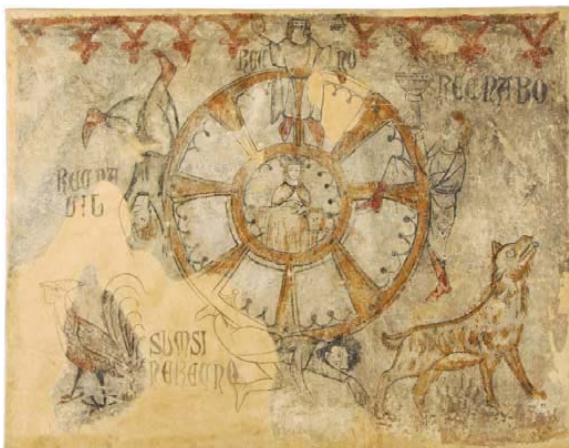 REG NO
REGNABO
REGNA
UIT
SUMSI
NEREGNO